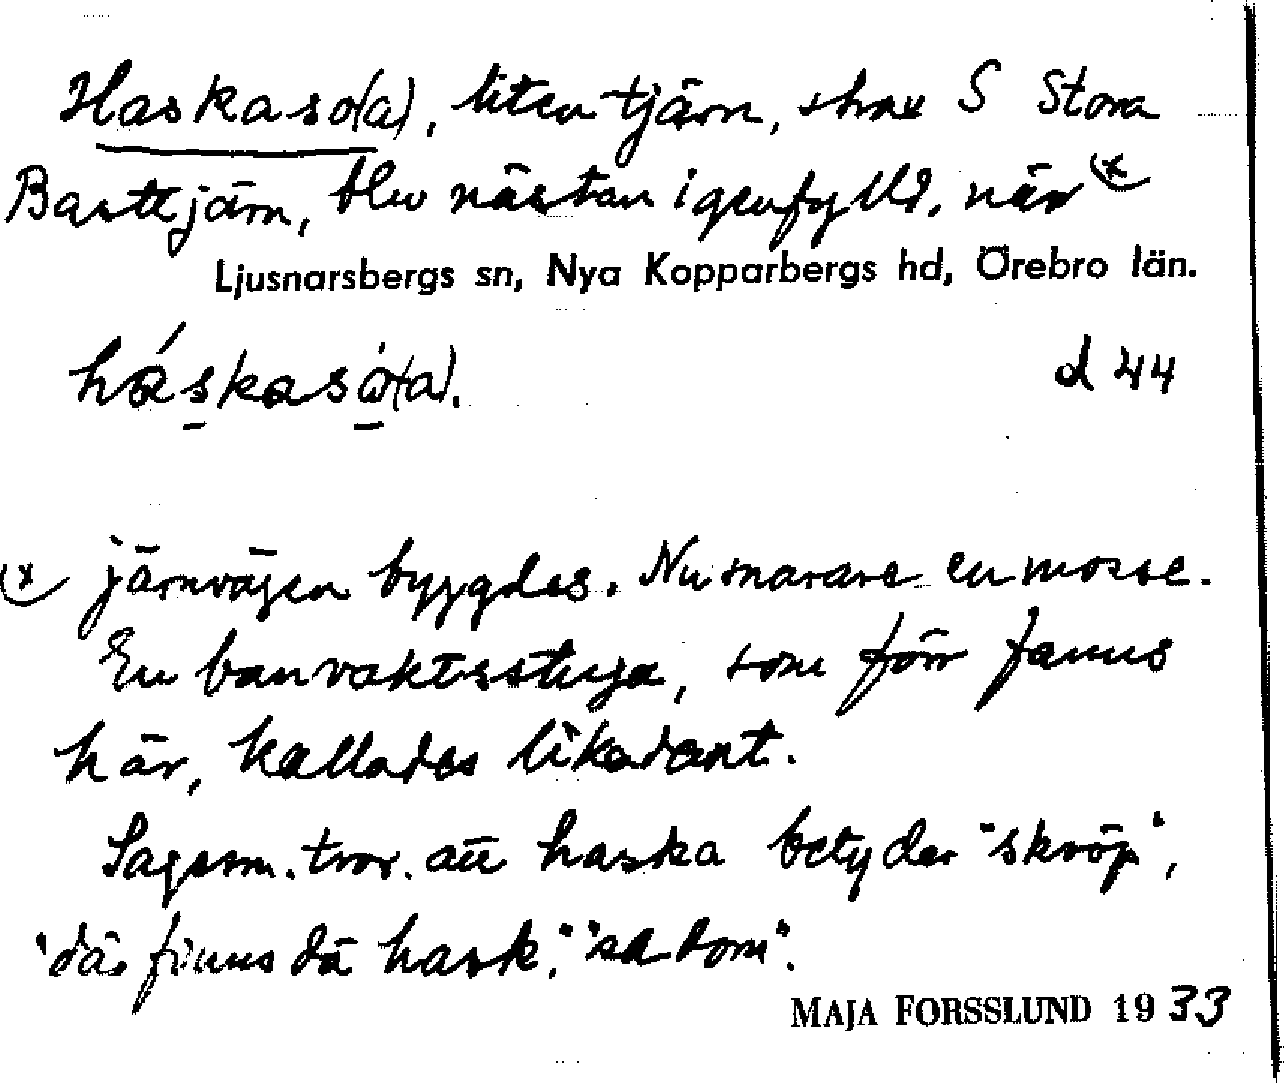 Haskaso(a), liten tjärn, strax S Stora
Basttjärn, blev nästan igenfylld, när (x
Ljusnarsbergs sn, Nya Kopparbergs hd, Örebro län.
háskasò(a). d 44
(x järnvägen byggdes. Numarare en mosse.
En banvaktsstuga, som förr fanns
här, kallades likadant.
Sagesm. tror. att haska betyder "skröp",
"där finns då hask," "sa dom".
MAJA FORSSLUND 1933